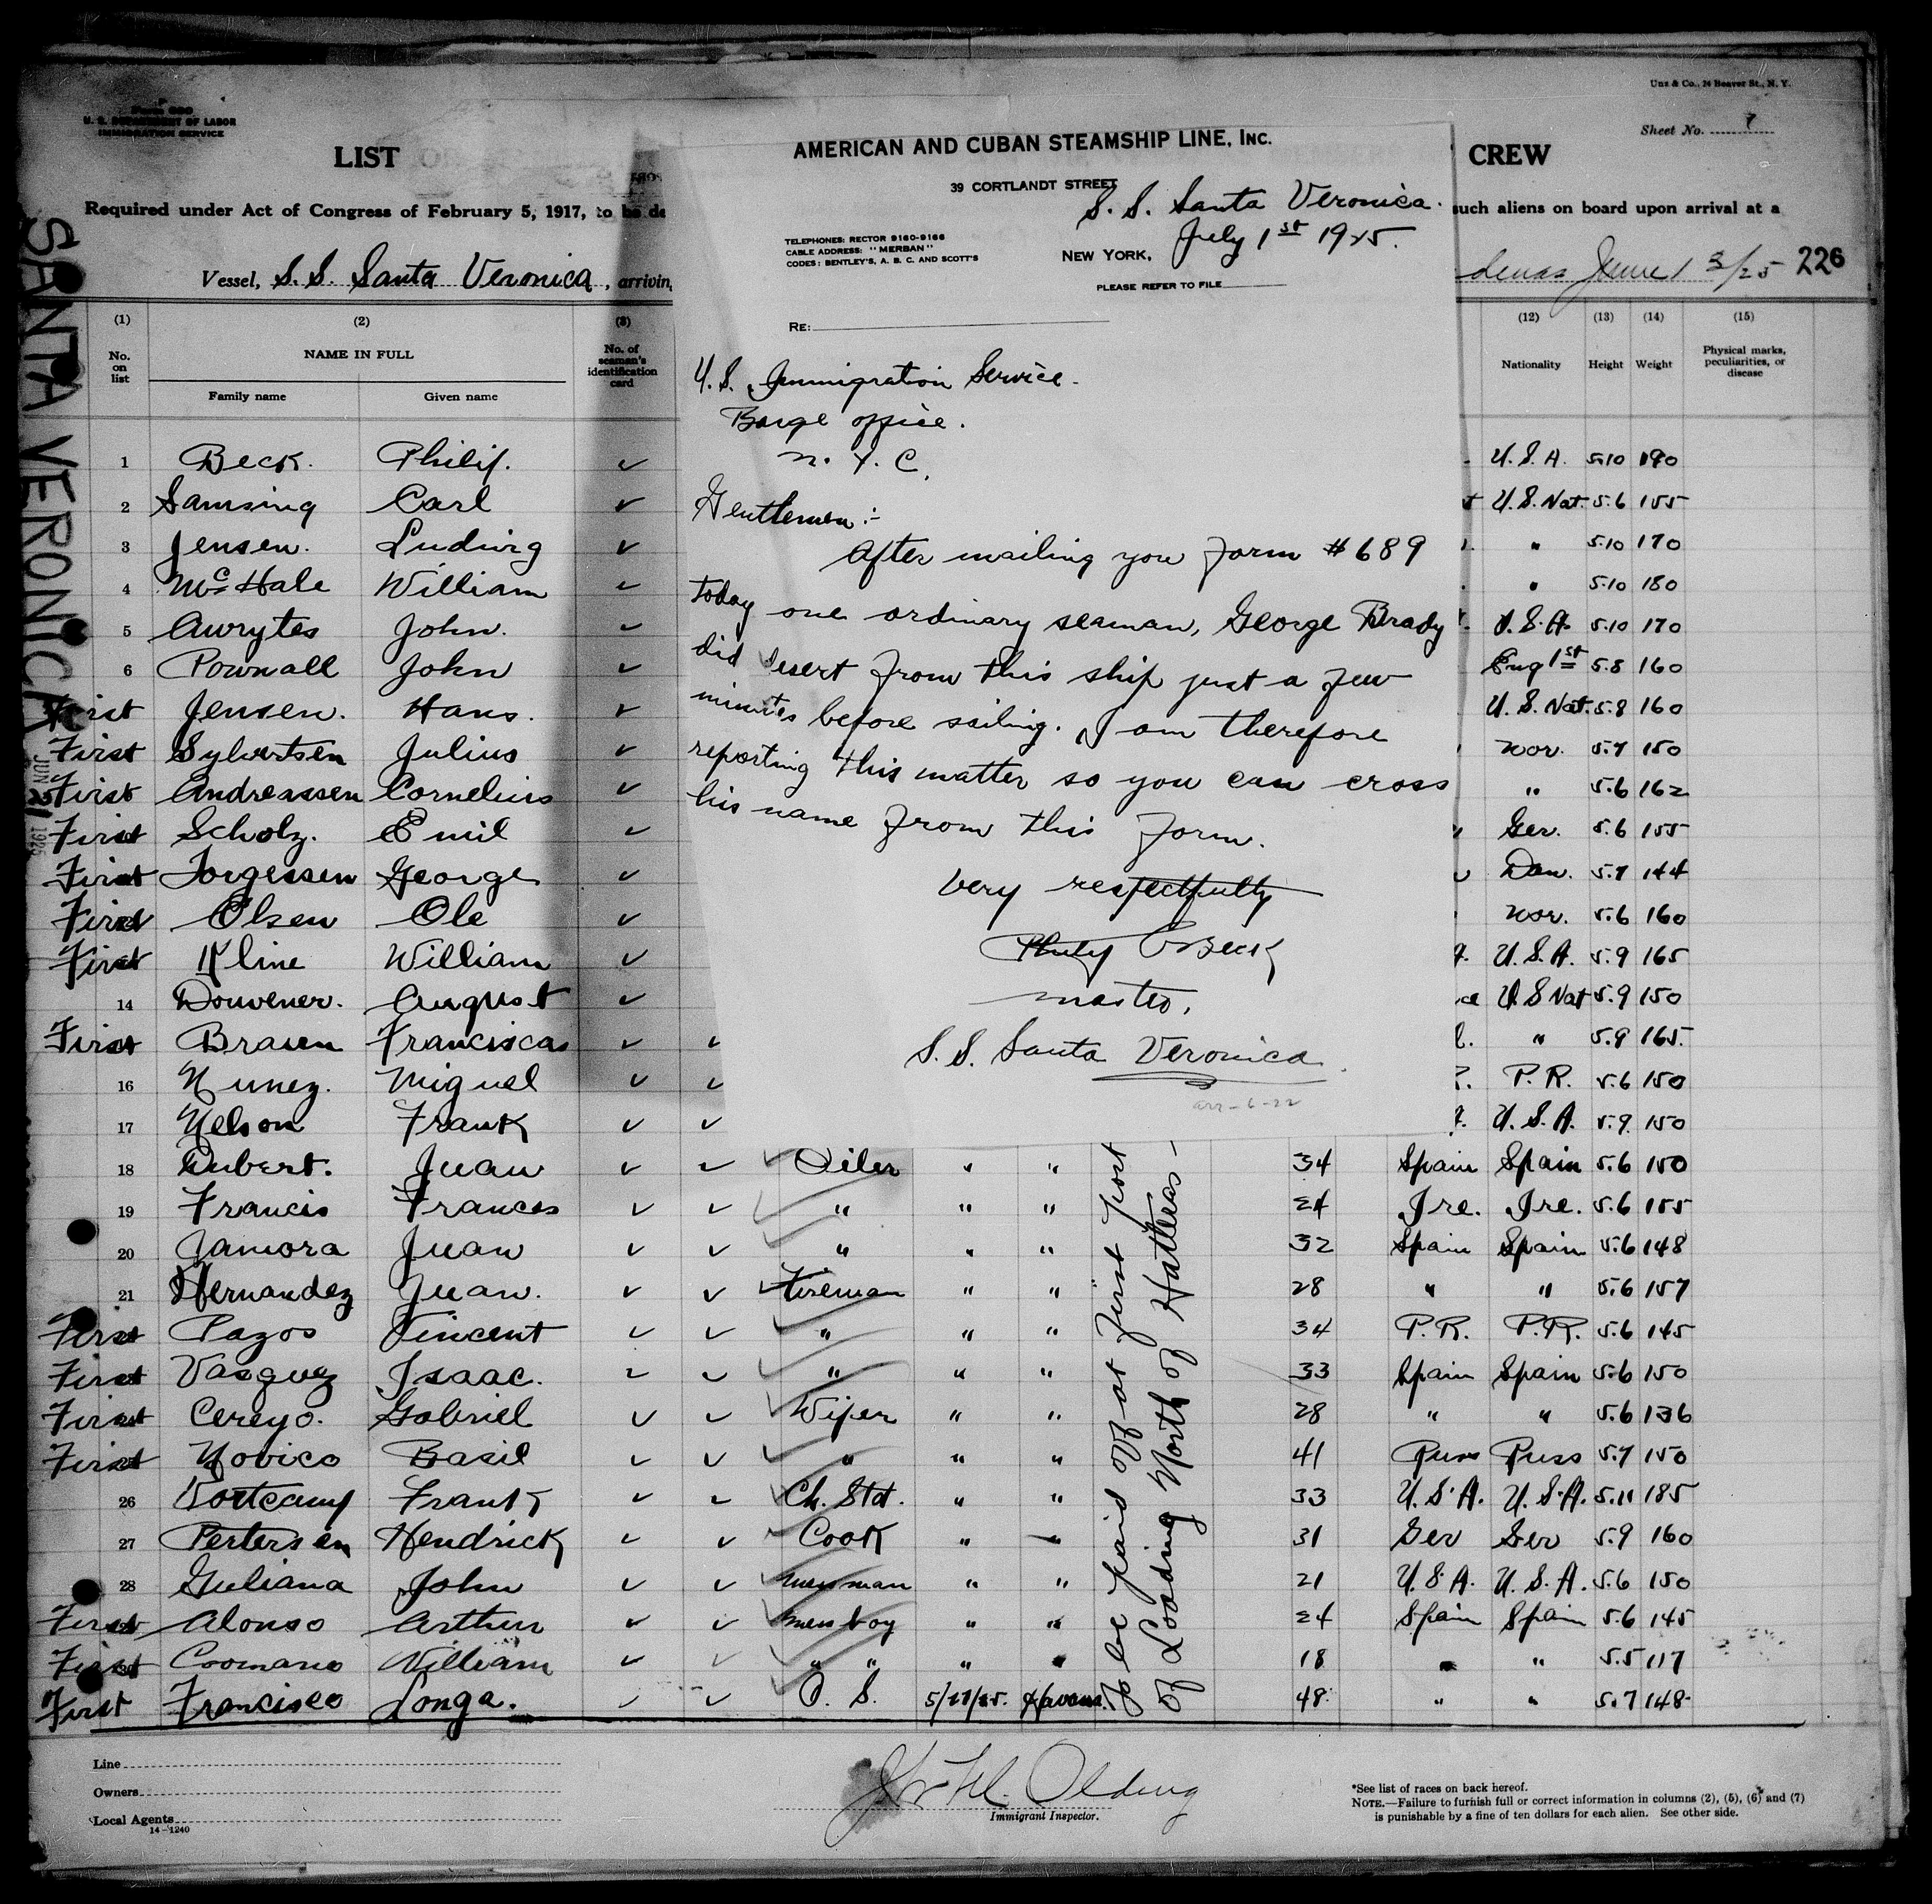 U. S. DEPARTMENT OF LABOR
IMMIGRATION SERVICE
Unz & Co., 24 Beaver St., N. Y.
Sheet No.
LIST
CREW
Required under Act of Congress of February 5, 1917, to be de
such aliens on board upon arrival at a
Vessel, S. S. Santa Veronica, arrivin
denas June 13/25 226
SANTA VERONICA
JUN 1925
AMERICAN AND CUBAN STEAMSHIP LINE, INC.
39 CORTLANDT STREET
S. S. Santa Veronica.
TELEPHONES: RECTOR 9160-9166
CABLE ADDRESS: "MERBAN"
CODES: BENTLEY'S, A. B. C. AND SCOTT'S
NEW YORK, July 1st 1925.
PLEASE REFER TO FILE
RE:
U. S. Immigration Service.
Barge office.
N. Y. C.
Gentlemen:-
After mailing you form #689
today one ordinary seaman, George Brady
did desert from this ship just a few
minutes before sailing. I am therefore
reporting this matter so you can cross
his name from this form.
Very respectfully
Philip Beck
master,
S. S. Santa Veronica
arr-6-22
(1) (2) (3) (12) (13) (14) (15)
No. on list
NAME IN FULL
Family name Given name
No. of seaman's identification card
Nationality Height Weight Physical marks, peculiarities, or disease
1 Beck. Philip. ✓ U.S.A. 5.10 190
2 Samsing Carl ✓ U.S. Nat. 5.6 155
3 Jensen. Ludwig ✓ " 5.10 170
4 McHale William ✓ " 5.10 180
5 Awrytes John. ✓ U.S.A. 5.10 170
6 Pownall John ✓ Eng 1st 5.8 160
First Jensen. Hans. ✓ U.S. Nat. 5.8 160
First Sylvertsen Julius ✓ Nor. 5.7 150
First Andreassen Cornelius ✓ " 5.6 162
First Scholz. Emil ✓ Ger. 5.6 155
First Jorgessen George ✓ Dan. 5.7 144
First Olsen Ole ✓ Nor. 5.6 160
First Kline William ✓ U.S.A. 5.9 165
14 Douvener. August ✓ U.S Nat 5.9 150
First Braun Franciscas ✓ ✓ " 5.9 165.
16 Nunez. Miguel ✓ ✓ P.R. 5.6 150
17 Nelson Frank ✓ ✓ U.S.A. 5.9. 150
18 Dubert. Juan ✓ ✓ ✓ Oiler " " 34 Spain Spain 5.6 150
19 Francis Frances ✓ ✓ ✓ " " " 24 Ire. Ire. 5.6 155
20 Zamora Juan ✓ ✓ ✓ " " " 32 Spain Spain 5.6 148
21 Hernandez Juan. ✓ ✓ ✓ Fireman " " 28 " " 5.6 157
First Pazos Vincent ✓ ✓ ✓ " " " 34 P.R. P.R. 5.6 145
First Vasquez Isaac. ✓ ✓ ✓ " " " 33 Spain Spain 5.6 150
First Cereyo. Gabriel ✓ ✓ ✓ Wiper " " 28 " " 5.6 136
First Novico Basil ✓ ✓ ✓ " " " 41 Russ Russ 5.7 150
26 Vortcamp Frank ✓ ✓ ✓ Ch. Std. " " 33 U.S.A. U.S.A. 5.11 185
27 Pertersen Hendrick ✓ ✓ ✓ Cook " 31 Ger Ger 5.9 160
28 Guliana John ✓ ✓ ✓ messman " " 21 U.S.A. U.S.A. 5.6 150
First Alonso Arthur ✓ ✓ ✓ mess boy " " 24 Spain Spain 5.6 145
First Coomano William ✓ ✓ ✓ " " " " 18 " " 5.5 117
First Francisco Longa. ✓ ✓ O. S. 5/27/25. Havana. 48 " " 5.7 148
To be paid off at first port
of Loading North of Hatteras-
Line
Owners
Local Agents
14-1240
Immigrant Inspector.
*See list of races on back hereof.
NOTE.—Failure to furnish full or correct information in columns (2), (5), (6) and (7)
is punishable by a fine of ten dollars for each alien. See other side.